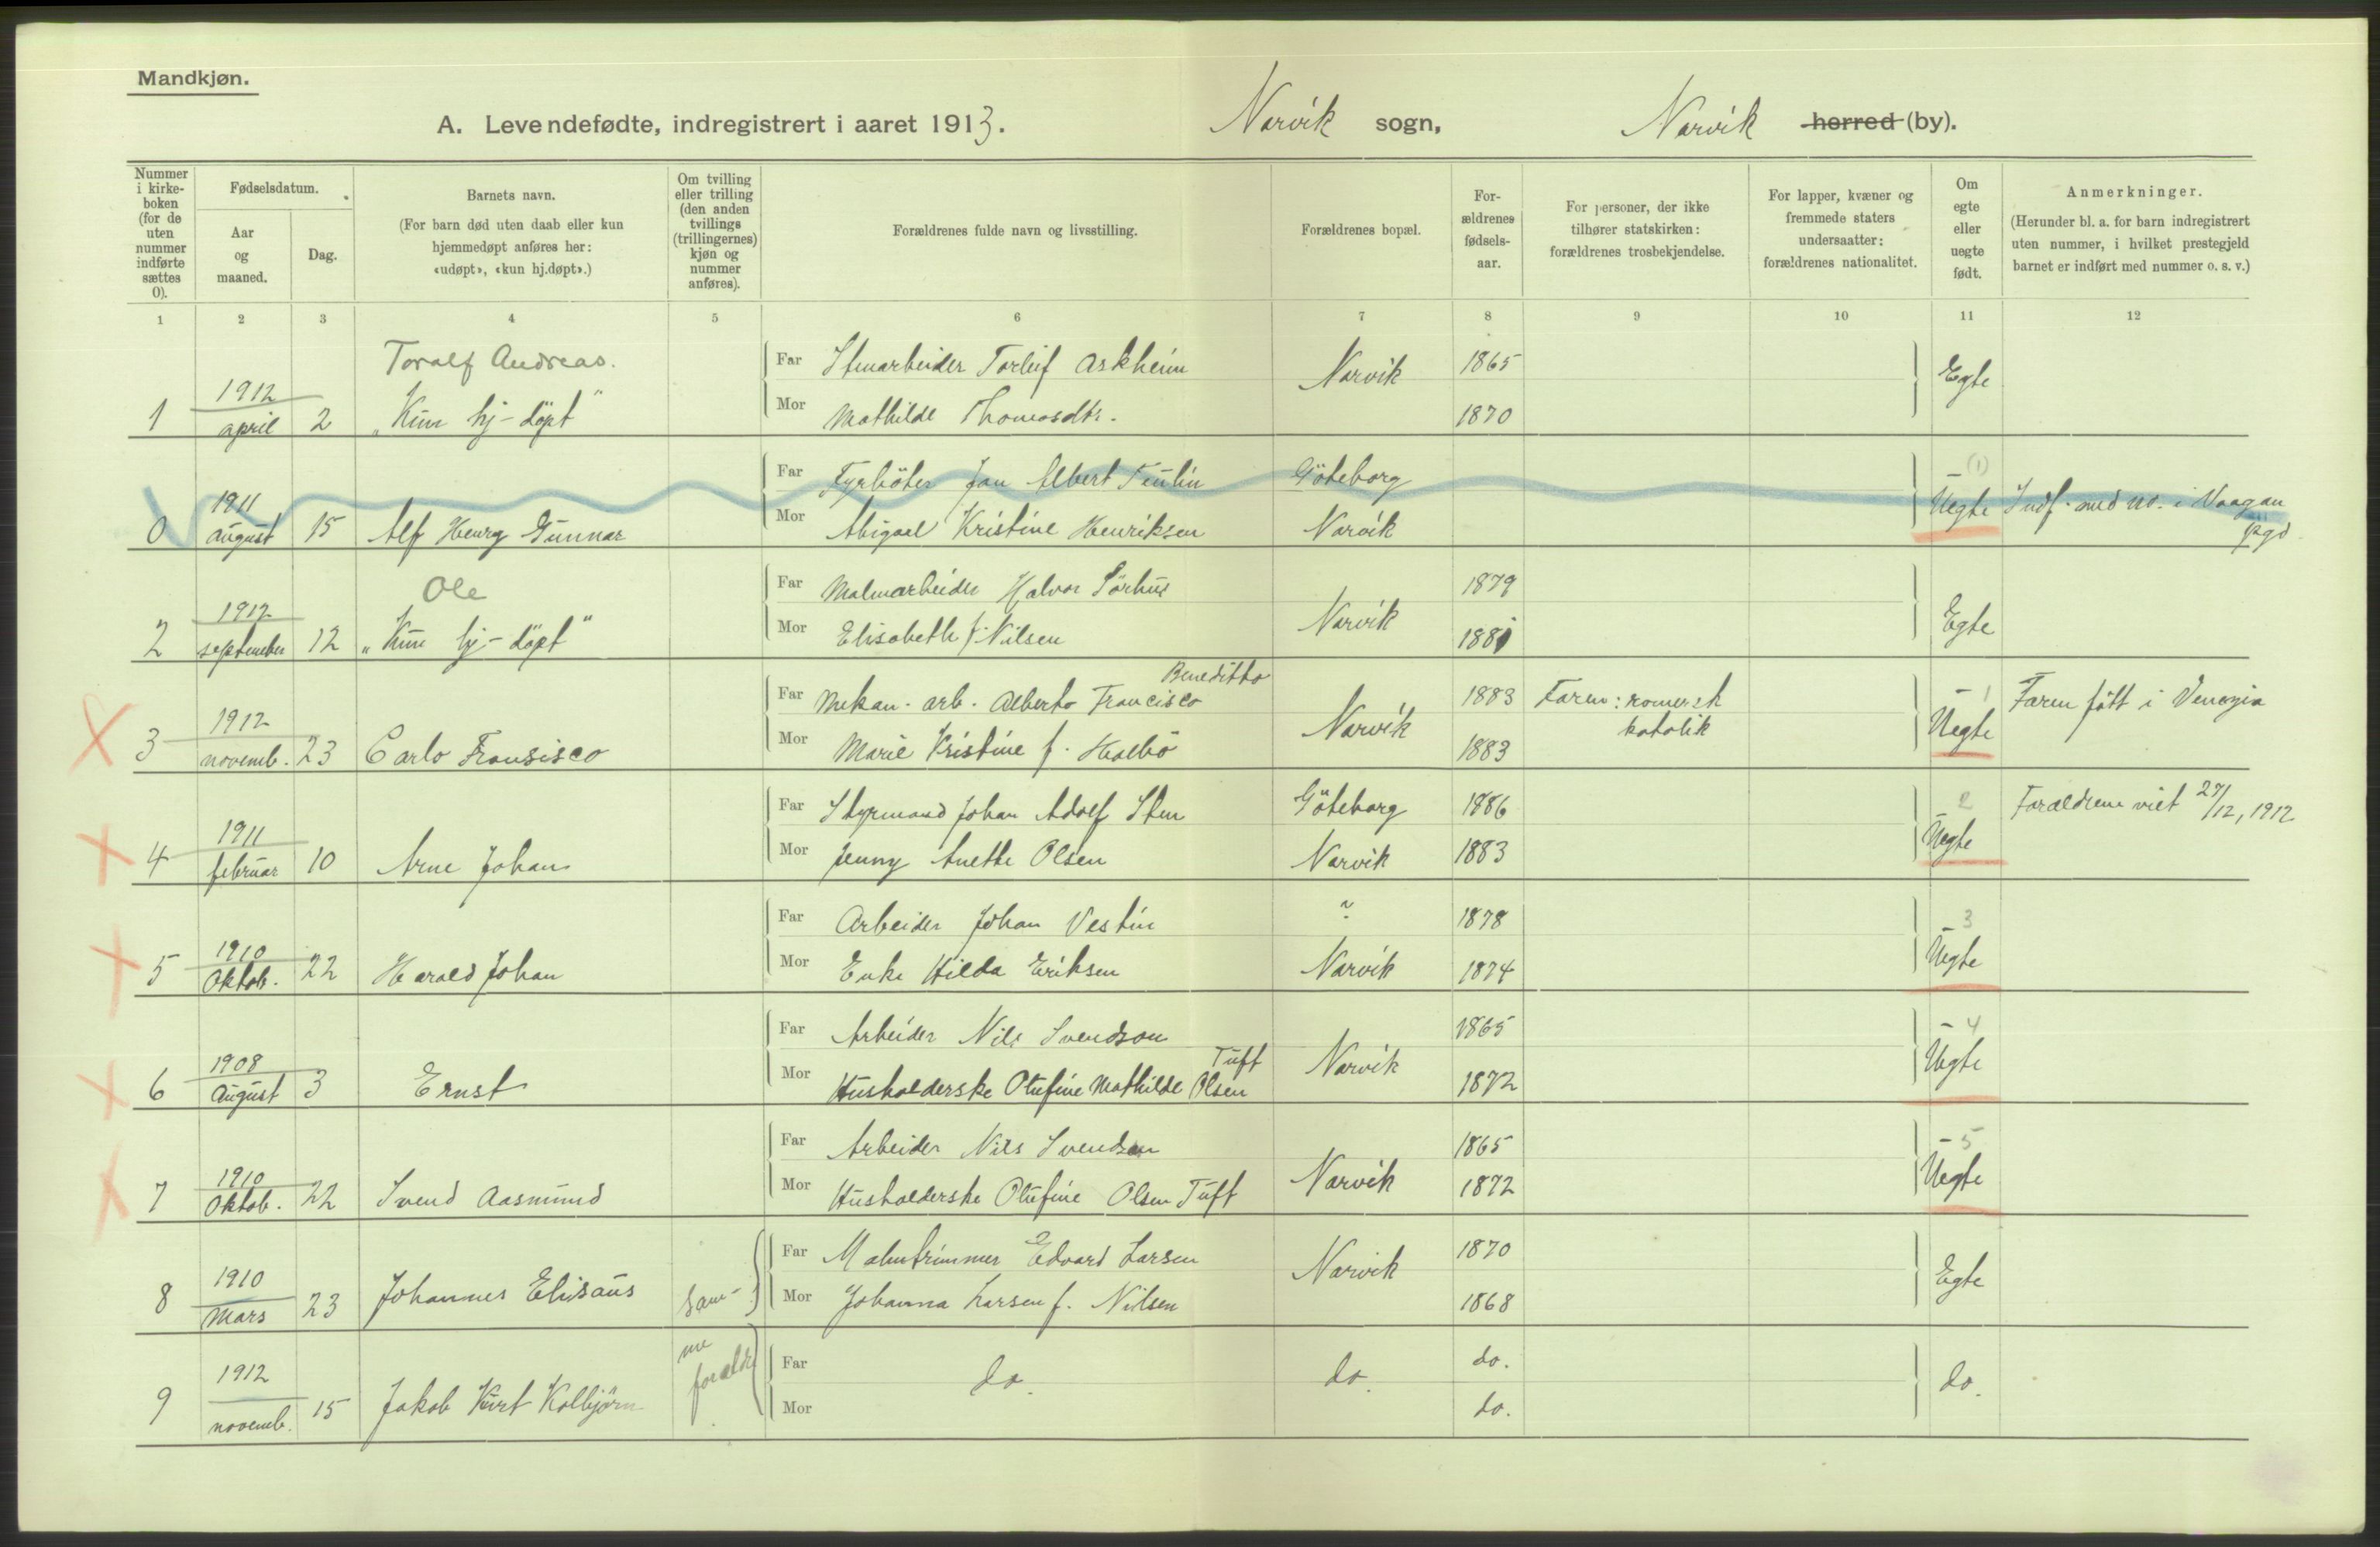 Mandkjøn.
A. Levendefødte, indregistrert i aaret 1913. Narvik sogn, Narvik herred (by).
Nummer i kirkeboken (for de uten nummer indførte sættes 0).
Fødselsdatum.
Aar og maaned.
Dag.
Barnets navn.
(For barn død uten daab eller kun hjemmedøpt anføres her: «udøpt», «kun hj.døpt».)
Om tvilling eller trilling (den anden tvillings (trillingernes) kjøn og nummer anføres).
Forældrenes fulde navn og livsstilling.
Forældrenes bopæl.
Forældrenes fødselsaar.
For personer, der ikke tilhører statskirken: forældrenes trosbekjendelse.
For lapper, kvæner og fremmede staters undersaatter: forældrenes nationalitet.
Om egte eller uegte født.
Anmerkninger.
(Herunder bl. a. for barn indregistrert uten nummer, i hvilket prestegjeld barnet er indført med nummer o. s. v.)
1 2 3 4 5 6 7 8 9 10 11 12
Toralf Andreas.
1 1912 april 2 „Kun hj-döpt"
Far Stenarbeider Torleif Askheim Narvik 1865 Egte
Mor Mathilde Thomasdtr. 1870
0 1911 august 15 Alf Henry Gunnar
Far Fyrböter Jan Albert Göteborg (1)
Mor Abigael Kristine Henriksen Narvik Uegte Indf. med no. i Vaagan pgd
Ole
2 1912 september 12 „Kun hj-döpt"
Far Malmarbeider Halvor Sörhus Narvik 1879 Egte
Mor Elisabeth f. Nilsen 1881
3 1912 novemb. 23 Carlo Fransisco
Far Mekan. arb. Alberto Francisco Beneditto Narvik 1883 Faren: romersk katolik – 1 Faren fött i Venezia
Mor Marie Kristine f. Holbö 1883 Uegte
4 1911 februar 10 Arne Johan
Far Styrmand Johan Adolf Sten Göteborg 1886 2 Forældrene viet 27/12, 1912
Mor Jenny Anette Olsen Narvik 1883 Uegte
5 1910 Oktob. 22 Harald Johan
Far Arbeider Johan Vestin ? 1878 3
Mor Enke Hilda Eriksen Narvik 1874 Uegte
6 1908 August 3 Ernst
Far Arbeider Nils Svendson Narvik 1865 – 4
Mor Husholderske Olufine Mathilde Olsen Tuft 1872 Uegte
7 1910 Oktob. 22 Svend Aasmund
Far Arbeider Nils Svendsen Narvik 1865 – 5
Mor Husholderske Olufine Olsen Tuft 1872 Uegte
8 1910 Mars 23 Johannes Elisäus sam-
Far Malmtrimmer Edvard Larsen Narvik 1870 Egte
Mor Johanna Larsen f. Nilsen 1868
9 1912 novemb. 15 Jakob Kurt Kolbjörn me foræld
Far do. do. do. do.
Mor do.